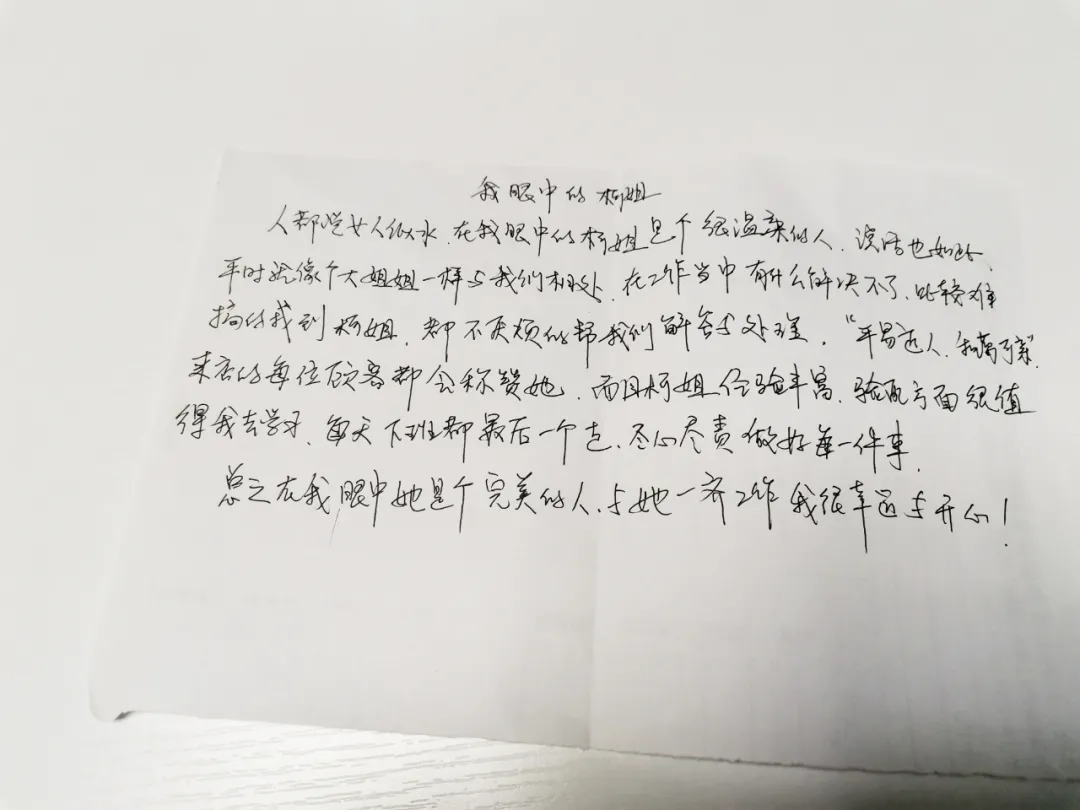 我眼中的柯姐
人都说女人似水.在我眼中的柯姐是个很温柔的人.说话也如此、
平时就像个大姐姐一样与我们相处.在工作当中有什么解决不了.比较难
搞的我到柯姐.都不厌烦的帮我们解答与处理."平易近人.和蔼可亲".
来店的每位顾客都会称赞她.而且柯姐经验丰富.验配方面很值
得我去学习.每天下班都最后一个走.尽心尽责做好每一件事.
总之在我眼中她是个完美的人.与她一齐工作我很幸运与开心!